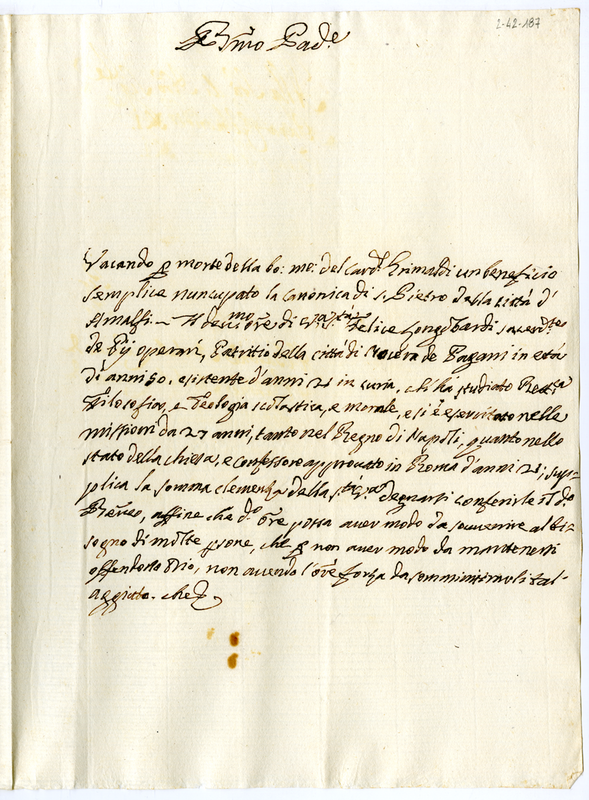 2-42-187
B.mo Pad.e
Vacando p morte della bo: me: del Card. Grimaldi un beneficio
semplice nuncupato la canonica di S. Pietro della Città d'
Amalfi. Il dev.mo ore di V. S.tà Felice Longobardi sacerd.te
de Pij operarij, Patritio della città di Nocera de Pagani in età
di anni 50, esistente d'anni 21 in curia, chi ha studiato Ret.ca
Filosofia, e Teologia scolastica, e morale, e si è esercitato nelle
missioni da 27 anni, tanto nel Regno di Napoli, quanto nello
stato della chiesa, e confessore approvato in Roma d'anni 21; sup=
plica la somma clemenza della S.tà V.a degnarsi conferirle il d.o
Ben.co, affine che d.o ore possa aver modo da sovvenire al bi=
sogno di molte psone, che p non aver modo da mantenersi
offendono Dio, non avendo l'ore forza da somministrarli tal'
aggiuto. che d.